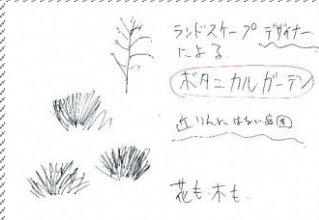 ランドスケープデザイナー
による
ボタニカルガーデン
近りんにはない庭園
花も木も